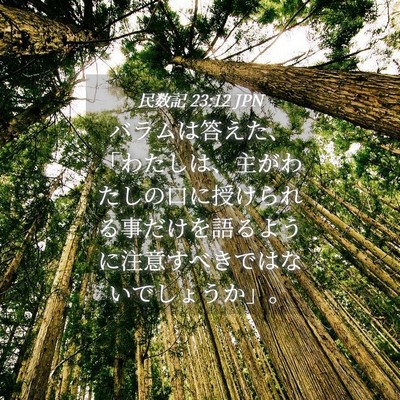 民数記 23:12 JPN
バラムは答えた、
「わたしは、主がわ
たしの口に授けられ
る事だけを語るよう
に注意すべきではな
いでしょうか」。